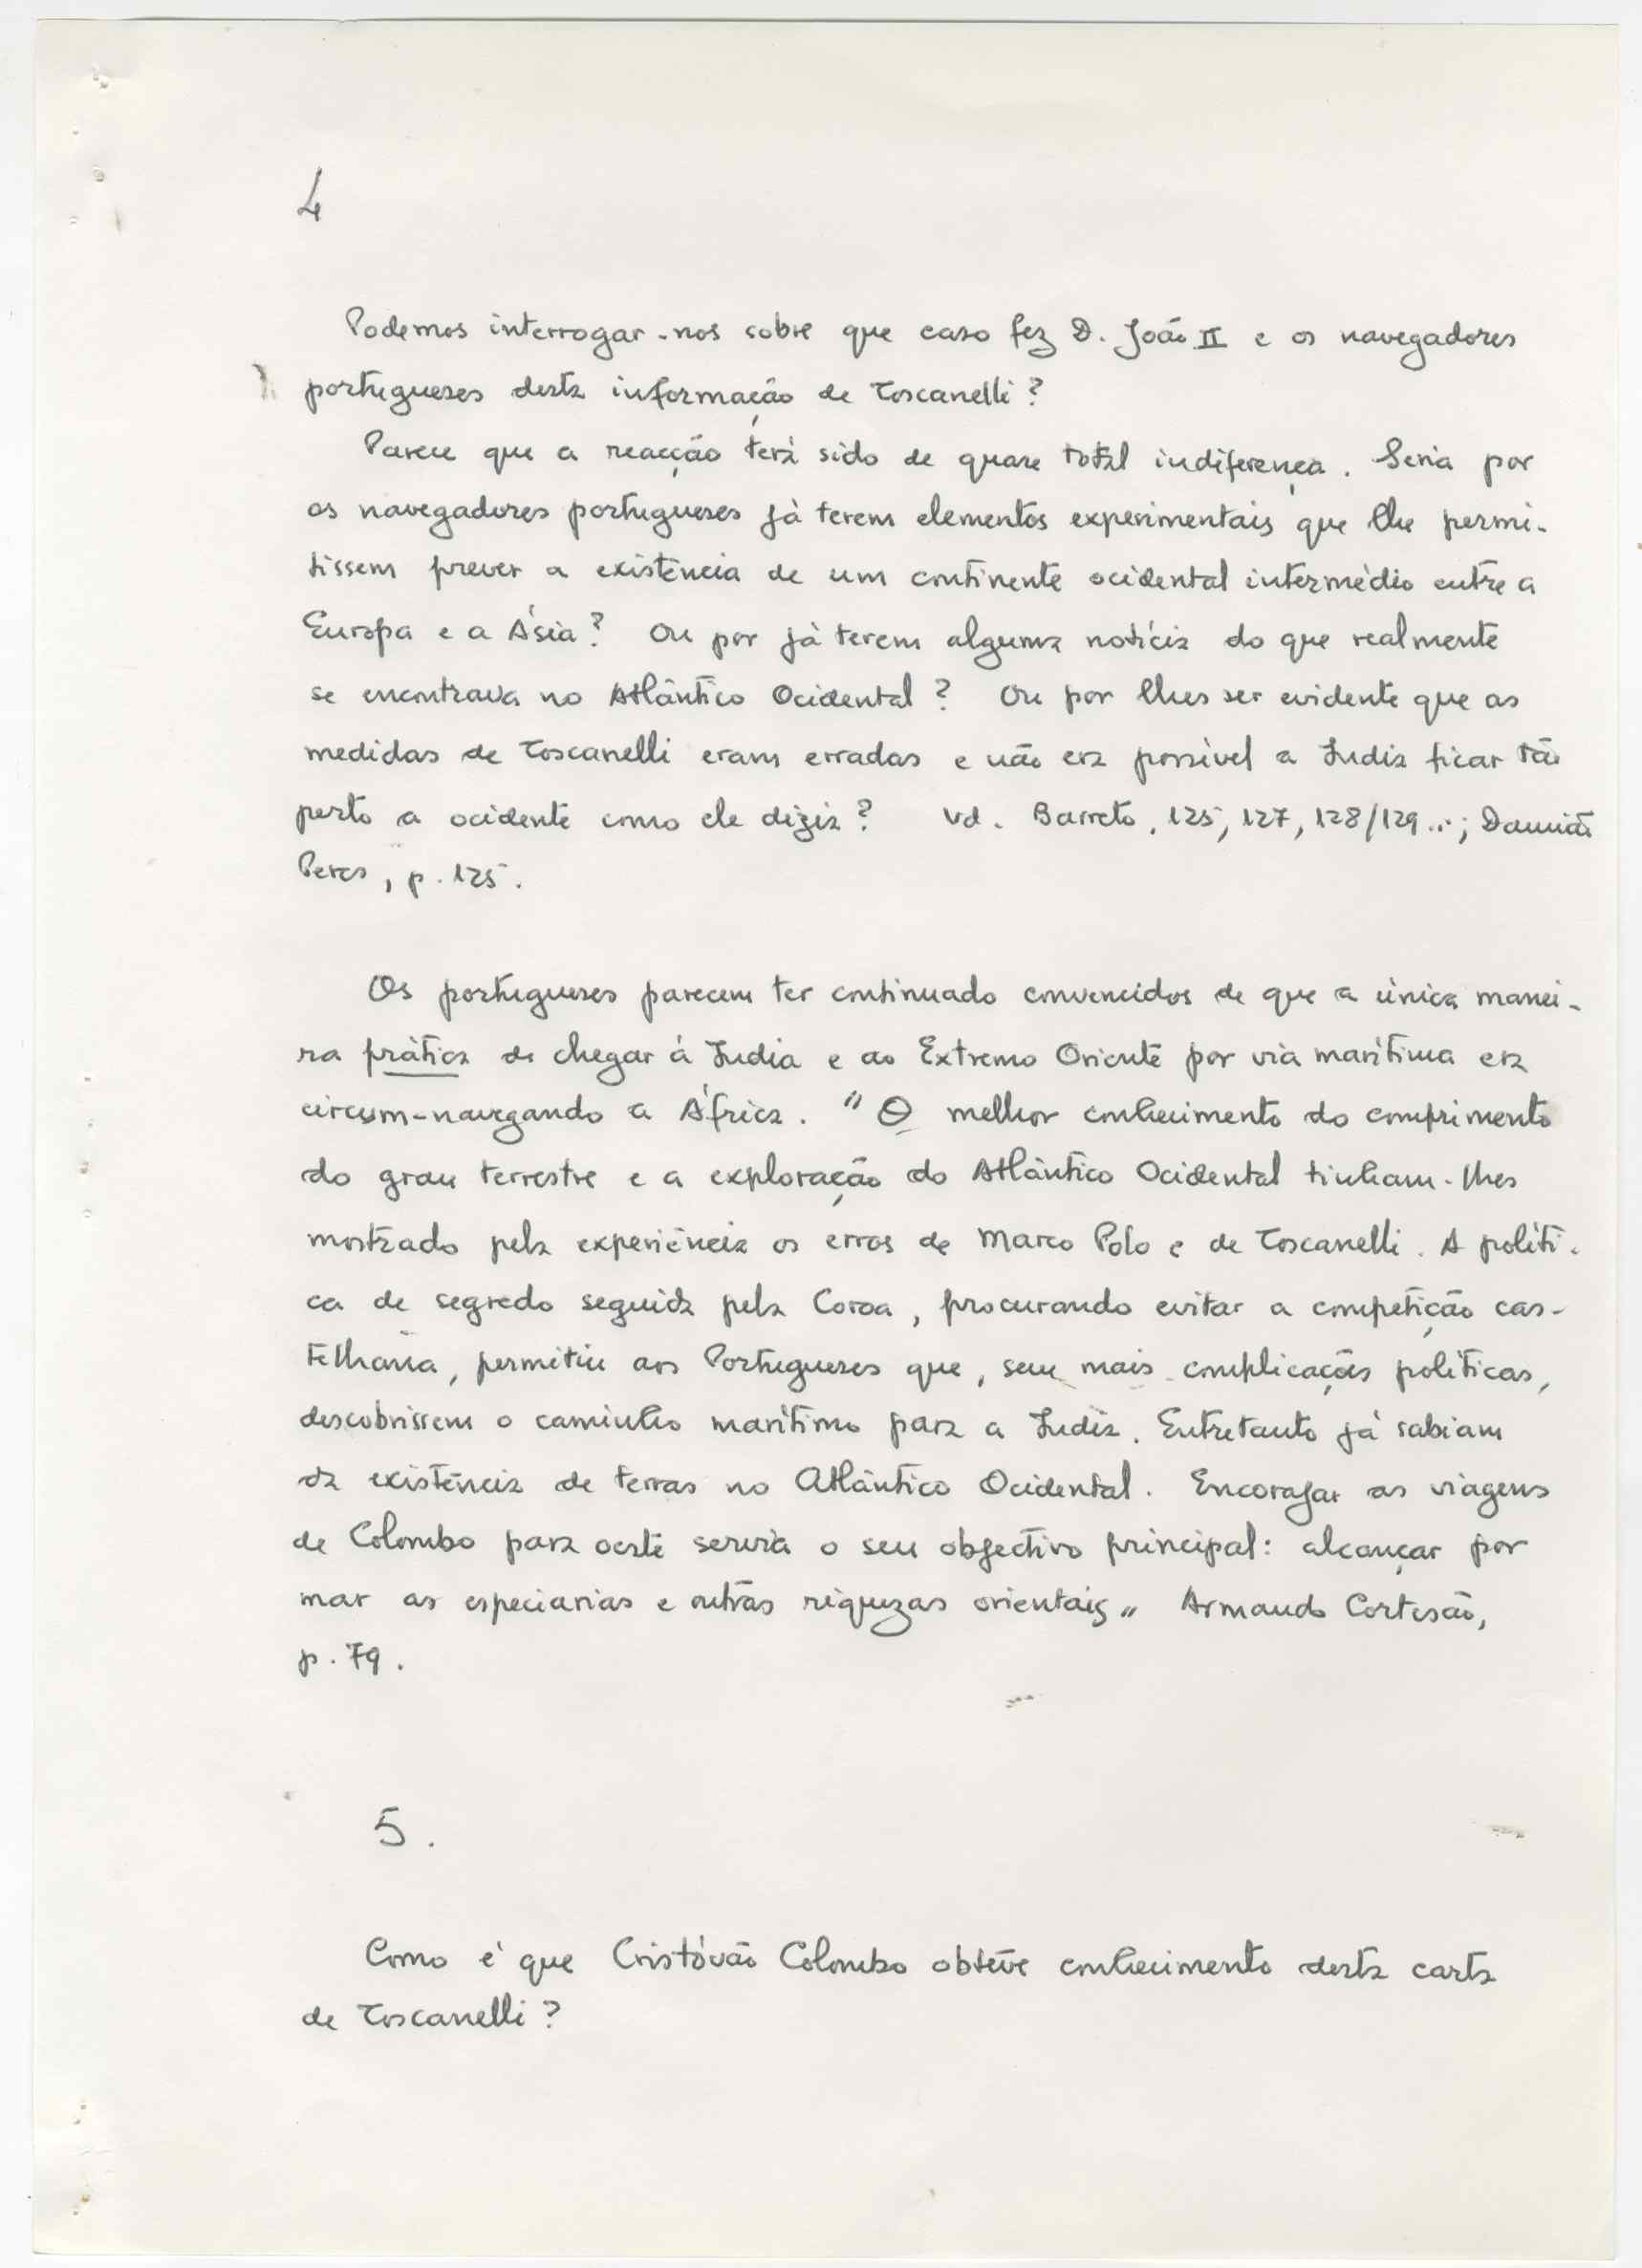 4
Podemos interrogar-nos sobre que caso fez D. João II e os navegadores
portugueses desta informação de Toscanelli?
Parece que a reacção terá sido de quase total indiferença. Seria por
os navegadores portugueses já terem elementos experimentais que lhe permi-
tissem prever a existência de um continente ocidental intermédio entre a
Europa e a Ásia? Ou por já terem alguma notícia do que realmente
se encontrava no Atlântico Ocidental? Ou por lhes ser evidente que as
medidas de Toscanelli eram erradas e não era possível a Índia ficar tão
perto a ocidente como ele dizia? Vd. Barreto, 125, 127, 128/129...; Damião
Peres, p. 125.
Os portugueses parecem ter continuado convencidos de que a única manei-
ra prática de chegar à Índia e ao Extremo Oriente por via marítima era
circum-navegando a África. "O melhor conhecimento do comprimento
do grau terrestre e a exploração do Atlântico Ocidental tinham-lhes
mostrado pela experiência os erros de Marco Polo e de Toscanelli. A políti-
ca de segredo seguida pela Coroa, procurando evitar a competição cas-
telhana, permitiu aos Portugueses que, sem mais complicações políticas,
descobrissem o caminho marítimo para a Índia. Entretanto já sabiam
da existência de terras no Atlântico Ocidental. Encorajar as viagens
de Colombo para oeste servia o seu objectivo principal: alcançar por
mar as especiarias e outras riquezas orientais" Armando Cortesão,
p. 79.
5.
Como é que Cristóvão Colombo obteve conhecimento desta carta
de Toscanelli?